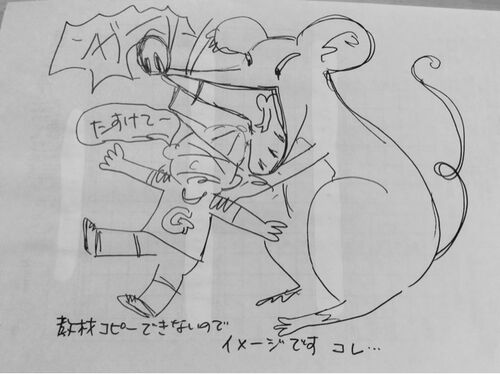 たすけてー
G
教材コピーできないので
イメージです コレ…